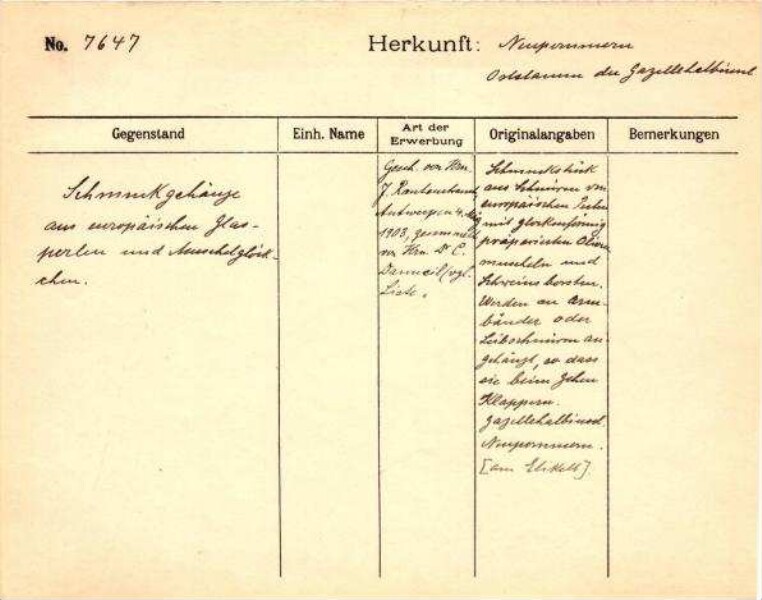 No. 7647
Herkunft: Neupommern
Oststamm der Gazellehalbinsel
Gegenstand
Einh. Name
Art der Erwerbung
Originalangaben
Bemerkungen
Schmuckgehänge
aus europäischen Glas-
perlen und Muschelglöck-
chen.
Gesch. von Hrn.
J. 
Antwerpen 4. Mai
1903, gesammelt
von Hrn. Dr C.
Danneil (vgl.
Liste.
Schmuckstück
aus Schnüren von
europäischen Perlen
mit glockenförmig
präparierten Oliva
muscheln und
Schweinsborsten.
Werden an Arm-
bänder oder
Leibschnüren an-
gehängt, so dass
sie beim Gehen
Klappern.
Gazellehalbinsel
Neupommern.
[am